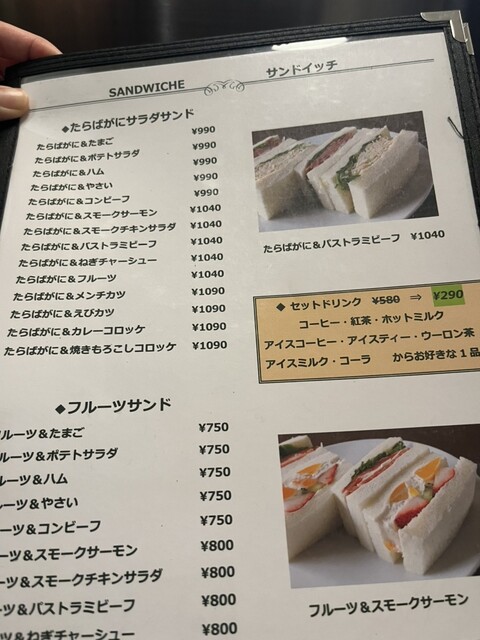 SANDWICHE サンドイッチ
◆たらばがにサラダサンド
たらばがに＆たまご ¥990
たらばがに＆ポテトサラダ ¥990
たらばがに＆ハム ¥990
たらばがに＆やさい ¥990
たらばがに＆コンビーフ ¥990
たらばがに＆スモークサーモン ¥1040
たらばがに＆スモークチキンサラダ ¥1040
たらばがに＆パストラミビーフ ¥1040
たらばがに＆ねぎチャーシュー ¥1040
たらばがに＆フルーツ ¥1040
たらばがに＆メンチカツ ¥1090
たらばがに＆えびカツ ¥1090
たらばがに＆カレーコロッケ ¥1090
たらばがに＆焼きもろこしコロッケ ¥1090
たらばがに＆パストラミビーフ ¥1040
◆ セットドリンク ¥580 ⇒ ¥290
コーヒー・紅茶・ホットミルク
アイスコーヒー・アイスティー・ウーロン茶
アイスミルク・コーラ からお好きな１品
◆フルーツサンド
ルーツ＆たまご ¥750
ルーツ＆ポテトサラダ ¥750
ルーツ＆ハム ¥750
ルーツ＆やさい ¥750
ーツ＆コンビーフ ¥750
ーツ＆スモークサーモン ¥800
ーツ＆スモークチキンサラダ ¥800
ーツ＆パストラミビーフ ¥800
ーツ＆ねぎチャーシュー ¥800
フルーツ＆スモークサーモン